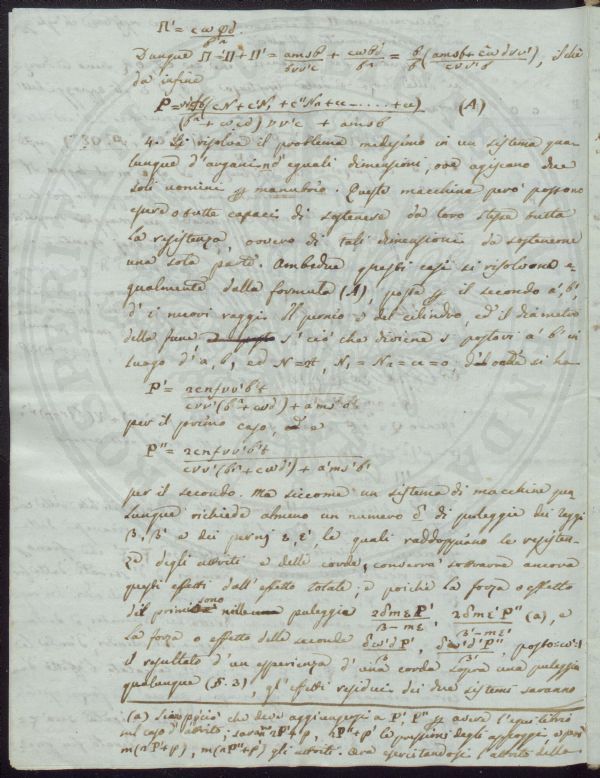 Π' = cω φd / b²
Dunque Π+Π' = amsb/bvv'c + cωbd/b² = b/b (amsb + c ω dvv' / cvv'b), il chè
da infine
P = (cN + cN₁ + c''N₂ + &c - .... + &c) / (b² + cωd) nv'c + amsb (A)
4. Si risolva il problema medesimo in un sistema qua-
lunque d'argani nº eguali dimensioni, ove agiscano due
soli uomini manubrio. Queste macchine però possono
essere o tutte capaci di sostenere da loro stesse tutta
la resistenza, ovvero di tali dimensioni da sostenerne
una sola parte. Ambedue questi casi si risolvono e-
gualmente dalla formula (A), posta il secondo a', b',
d' i nuovi raggi del cilindro, ed il diametro
della fune s' ciò che diviene s postovi a' b' in
luogo d'a, b, ed N = π, N₁ = N₂ = &c = 0; si ha
P' = 2cnfvv'b't / cvv'(b² + cωd) + a'ms'b'
per il primo caso, e
P'' = 2cnfvv'b't / cvv'(b'² + cωd') + a'ms'b'
per il secondo. Ma siccome un sistema di macchine qua-
lunque richiede almeno un numero δ di puleggie dei raggi
β, β' e dei pernj ε, ε', le quali raddoppiano le resisten-
ze degli attriti e delle corde, converrà sottrarre ancora
questi effetti dall'effetto totale; e poichè la forza o effetto
dei primi sono nelle puleggie 2δmεP' / β-mε, 2δmε'P'' / β'-mε' (a), e
la forza o effetto delle seconde δω'dP' / β, δω'd'P'' / β', posto
il resultato d'un esperienza d'una corda sopra una puleggia
qualunque (§. 3), gl'effetti residui dei due sistemi saranno
(a) ciò che deve aggiungersi a P', P'' avere l'equilibrio
nel caso d'attrito; saran nP'+φ, nP''+φ' le pressioni degli appoggi e però
m(nP'+φ), m(nP''+φ) gli attriti. Ora esercitandosi l'attrito della